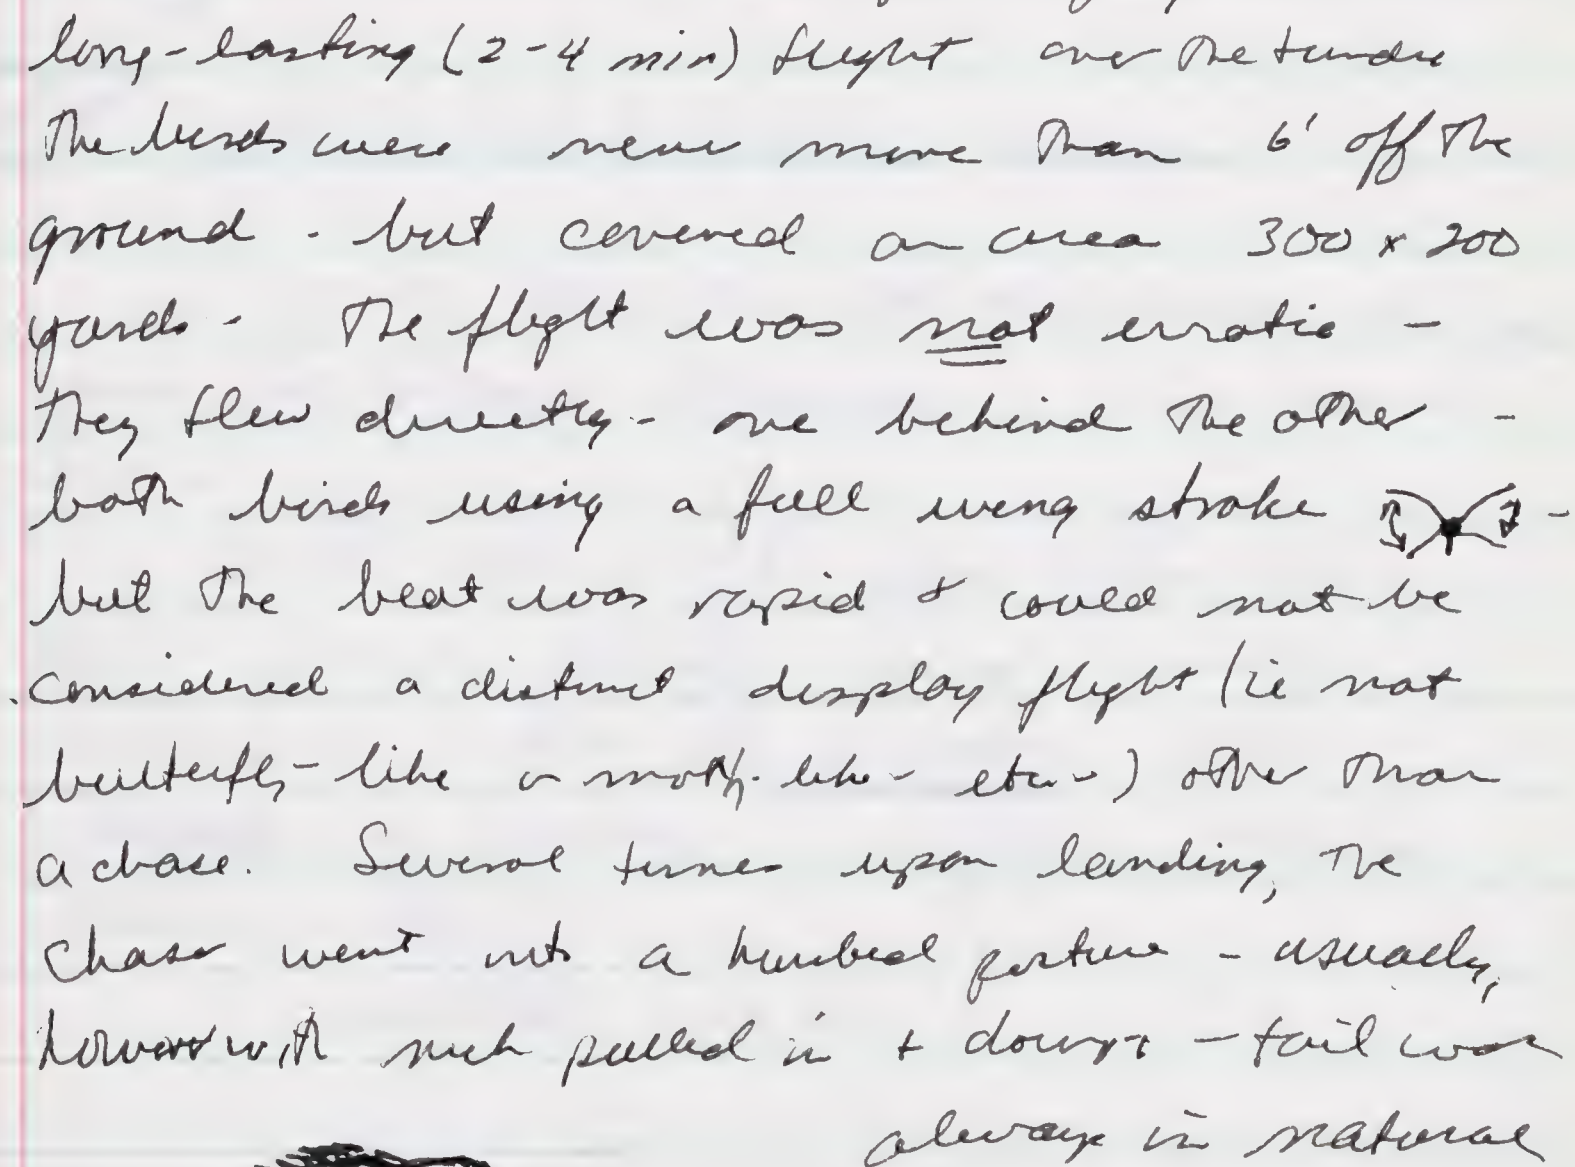 long-lasting (2-4 min) flight over the tundra
The birds were never more than 6' off the
ground - but covered an area 300 x 200
yards - The flight was not erratic -
They flew directly - one behind the other -
both birds using a full wing stroke -
but the beat was rapid & could not be
considered a distinct display flight (ie not
butterfly-like or moth-like - etc -) other than
a chase. Several times upon landing, the
chaser went into a hunched posture - usually,
however with neck pulled in + down + - tail was
always in natural